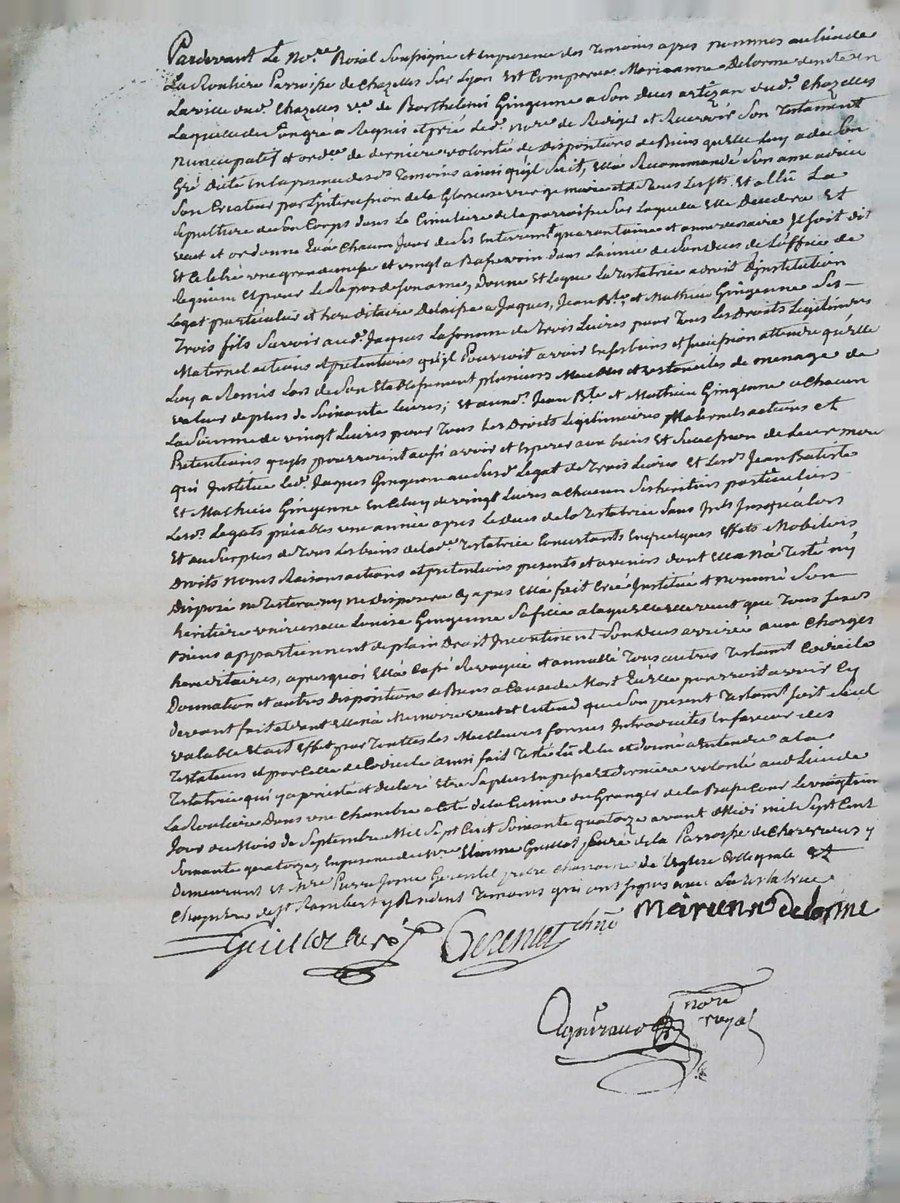 Pardevant Le No.re Roial Soussigné et en presence des Temoins apres nommes au lieu de
La Rouliere Parroisse de Chazelles Sur Lyon Est Comparue Marianne Delorme
La ville dud. Chazelles v.ve de Barthelemi Gingenne a Son deces artizan dud. Chazelles
Laquelle de Son gré a Requis et prié Led. no.re de Rediger et Recevoir Son Testament
Nuncupatif et ord.re de derniere volonté et dispositions de Biens quelle luy a de Son
Gré dicté En la presence desd. Temoins ainsi quil Suit, Ella Recommandé Son ame a dieu
Son Createur par L'intercession de la Glorieuse vierge marie et de Tous Les Sts. Et allu La
Sepulture de Son Corps dans Le Cimetiere de la parroisse Sur Laquelle Elle Decedera Et
veut et ordonne qu'a Chacun Jour de Ses Enterrem.t quarantaine et anniversaire Il Soit dit
Et Celebré une grande messe et vingt a Basse voix dans L'année de Son deces de L'office de
Requiem Et pour Le Repos de Son ame, Donne Et Legue La Testatrice a droit d'institution
Legat particulier et hereditaire Delaisse a Jacques, Jean Bte. et Mathieu Gingenne Ses
Trois fils Savoir aud. Jacques La Somme de Trois Livres pour Tous Les Droits Legitimaires
Maternel actions et pretentions qu'il Pourroit avoir En Ses biens et Succession attendu qu'elle
Luy a Remis Lors de Son Etablissement plusieurs Meubles et ustenciles de menage de
valeur de plus de Soixante Livres; Et auxd. Jean Bte. et Mathieu Gingenne a Chacun
La Somme de vingt Livres pour Tous Les Droits Legitimaires Maternels actions et
Pretentions quils pourroient aussi avoir et Esperer aux biens Et Succession de Leur mere
qui Institue Led. Jacques Gingenne aud. Legat de Trois Livres Et Lesd. Jean Batiste
Et Mathieu Gingenne En Celuy de vingt Livres a Chacun Ses heritiers particuliers
Lesd. Legats paiables une année apres Le deces de la Testatrice Sans Int.ts Jusqu'alors
Et au Surplus de Tous Les biens de lad.te Testatrice Consistants En quelques Effets Mobiliers
Droits noms Raisons actions et pretentions presents et avenirs dont Ella Na Testé ny
Disposé ne Testera ny ne Disposera Cy apres Ella fait Créé Institué et Nommé Son
heritiere universelle Louise Gingenne Sa fille a laquelle elle veut que Tous Sesd.
Biens appartiennent de plain Droit Incontinent Son deces arrivé aux Charges
hereditaires, apres quoi Ella Cassé Revoqué et annullé Tous autres Testam.t Codicile
Donnation et autres Dispositions de Biens a Cause de Mort Quelle pourroit avoir Cy
devant fait dont Ella na Memoire veut et Entend que Son present Testam.t Soit Seul
valable Et ait Effet par Touttes Les Meilleures formes Introduites En faveur des
Testateurs et par Celle de Codicile ainsi fait Testé Lû Relu et donné a Entendre a la
Testatrice qui y a persisté et declaré Etre Sa plus Expresse Et derniere volonté aud. Lieu de
La Rouliere Dans une Chambre a Coté de la Cuisine du Granger de la Basse Cour Le vingtun
Jour du Mois de Septembre Mil Sept Cent Soixante quatorze avant Midi mil Sept Cent
Soixante quatorze, En presence de M.re Etienne Guillot Curé de la Parroisse de Chevrieres y
Demeurant et M.re Pierre Gerentet prêtre Chanoine de l'Eglise Collegiale Et
Chapitre de St Rambert y Resident Temoins qui ont Signés avec La Testatrice
Guillot Curé Gerentet chne marianne delorme
nore royal